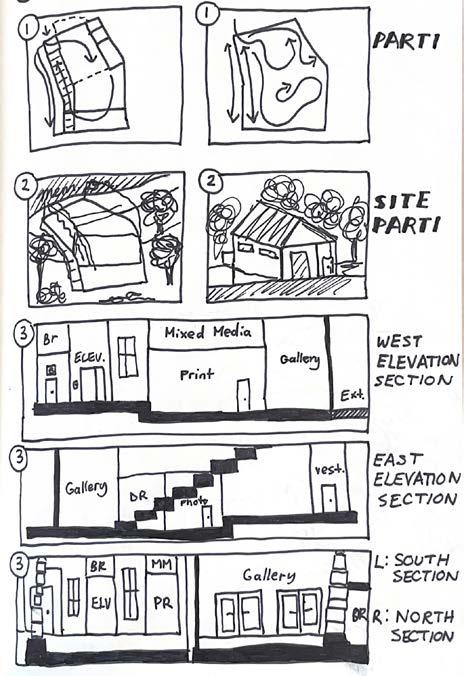 1
1
PARTI
2
2
SITE
PARTI
3
Br
ELEV.
Mixed Media
Print
Gallery
Ext.
WEST
ELEVATION
SECTION
3
Gallery
DR
Photo
vest.
EAST
ELEVATION
SECTION
3
BR
MM
ELV
PR
Gallery
BR
L: SOUTH
SECTION
R: NORTH
SECTION